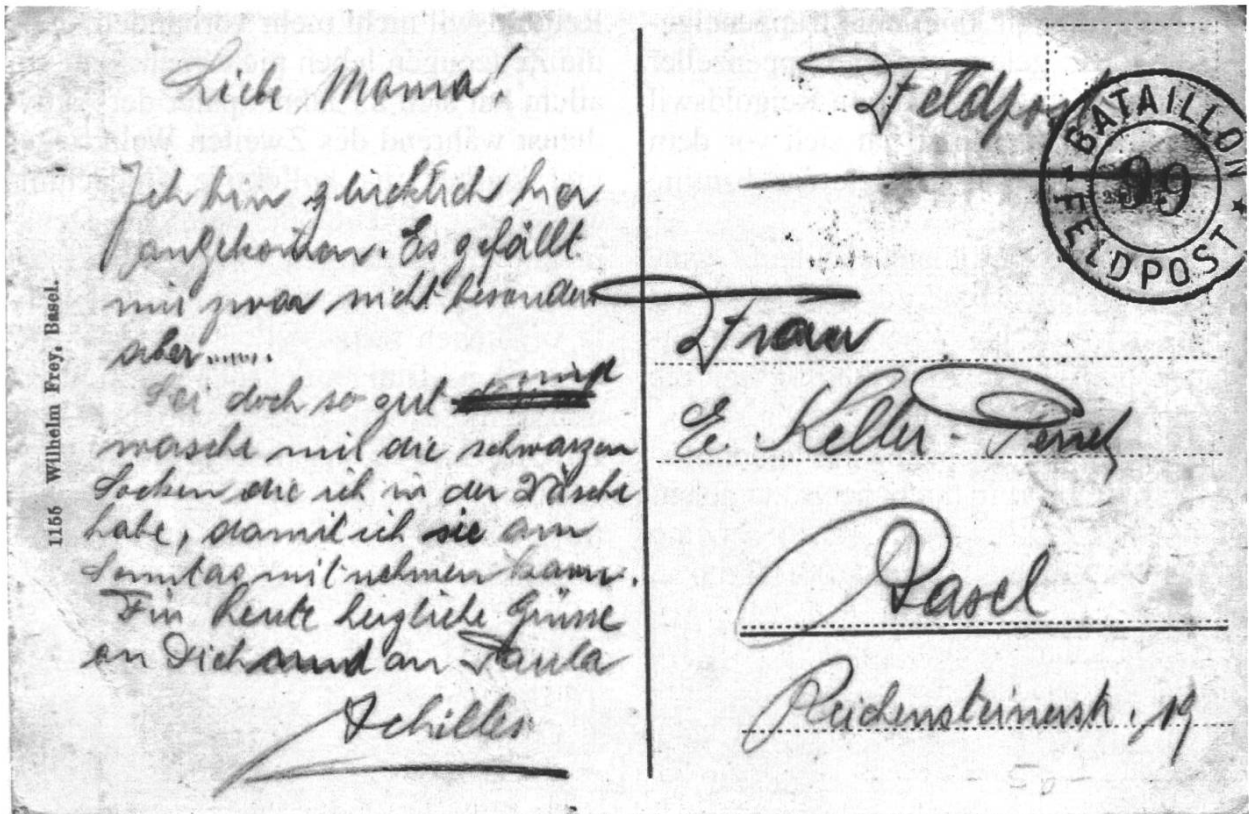 Liebe Mama!
Ich bin glücklich hier
angekomen. Es gefällt
mir zwar nicht besonders
aber......
Sei doch so gut und
wasche mil die schwarzen
Socken die ich in der Wäsche
habe, damit ich sie am
Sonntag mitnehmen kann.
Für heute herzliche Grüsse
an Dich und an Paula
Achilles
1156 Wilhelm Frey, Basel.
Feldpost
BATAILLON
99
FELDPOST
Frau
E. Keller-
Basel
Reichensteinerstr. 19